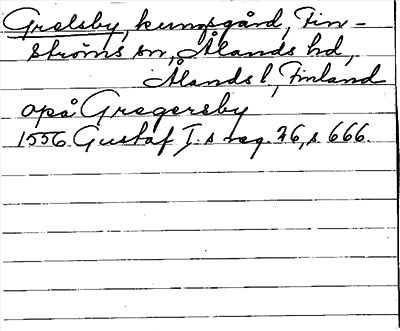 Grelsby, kungsgård, Fin-
ströms sn, Ålands hd,
Ålands l, Finland
opå Gregersby
1556. Gustaf I.s reg. 26, s. 666.